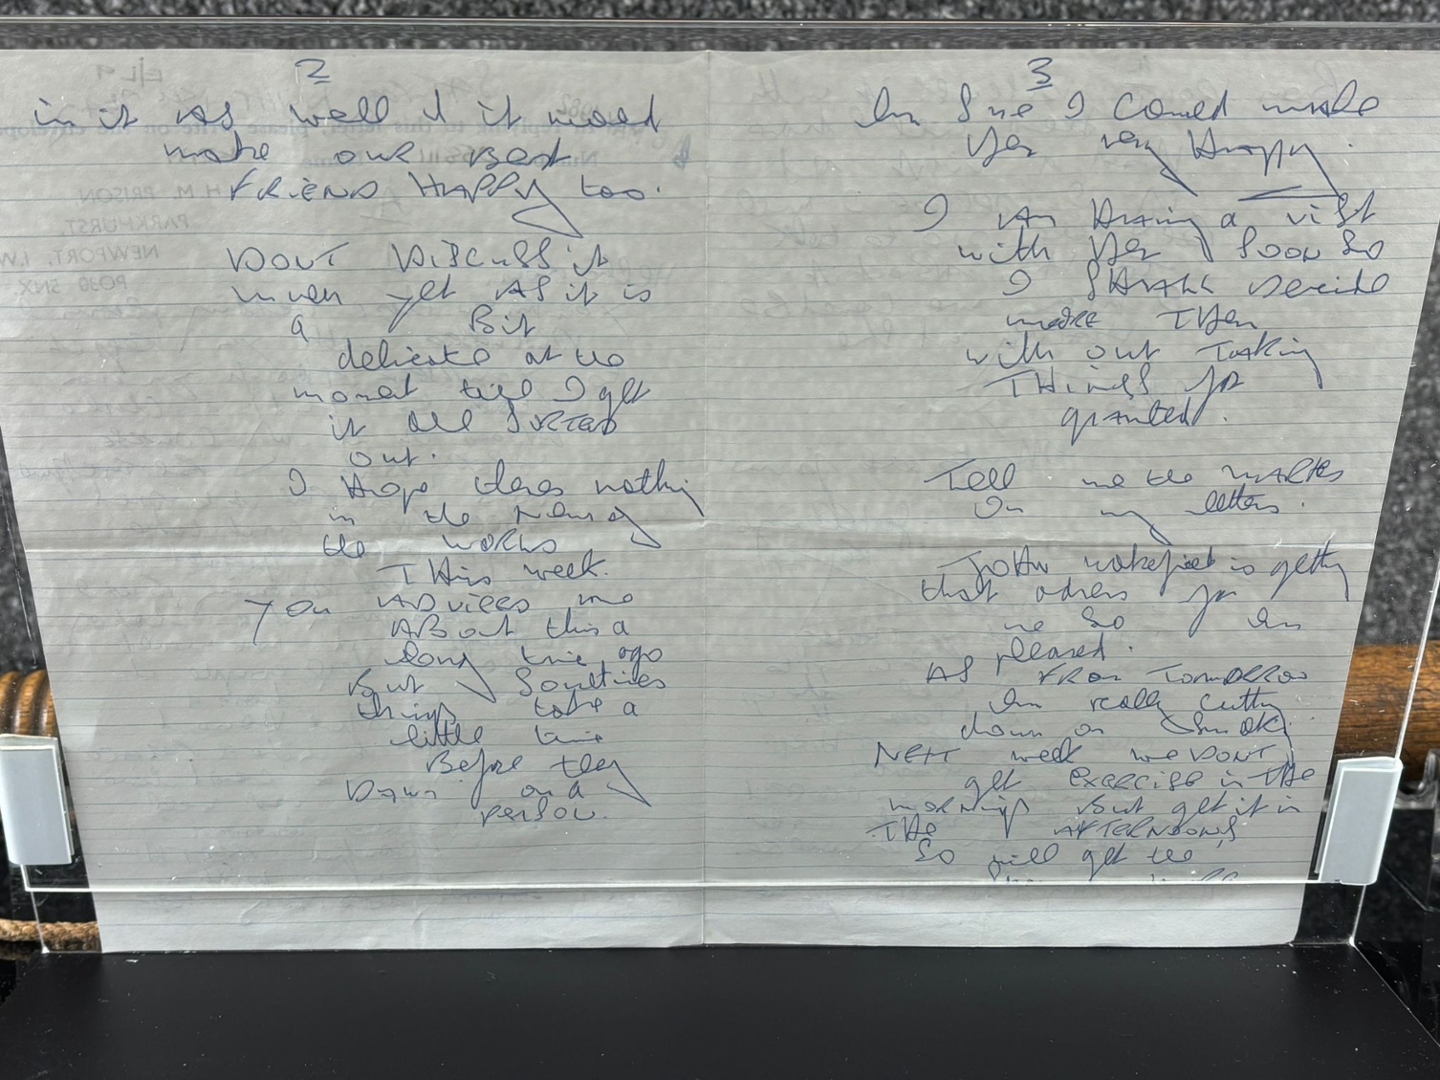 2
in it AS well & it would
make our Best
FRIEND HAPPY too.
DONT DISCUSS it
much yet AS it is
a Bit
delicate at the
moment till I get
it all SORTED
out.
I Hope theres nothing
in the News of
the world
THis week.
You ADVICED me
ABout this a
long time ago
But Somtimes
things take a
little time
Before they
Dawn on a
person.
3
Im Sure I Could make
Her very Happy.
I Am Having a visit
with Her Soon So
I SHALL Decide
more THen
with out TAKing
THINGS for
granted.
Tell me the
On my letters.
JOHN is getting
that adress for
me So Im
pleased.
AS FROM TOMORROW
Im really cutting
down on Smok
NEXT week we DONT
get EXERCISE in THE
mornings But get it in
THE AFTERNOONS
So will get the
H.M. PRISON
PARKHURST,
NEWPORT, I.W.
PO30 5NX.